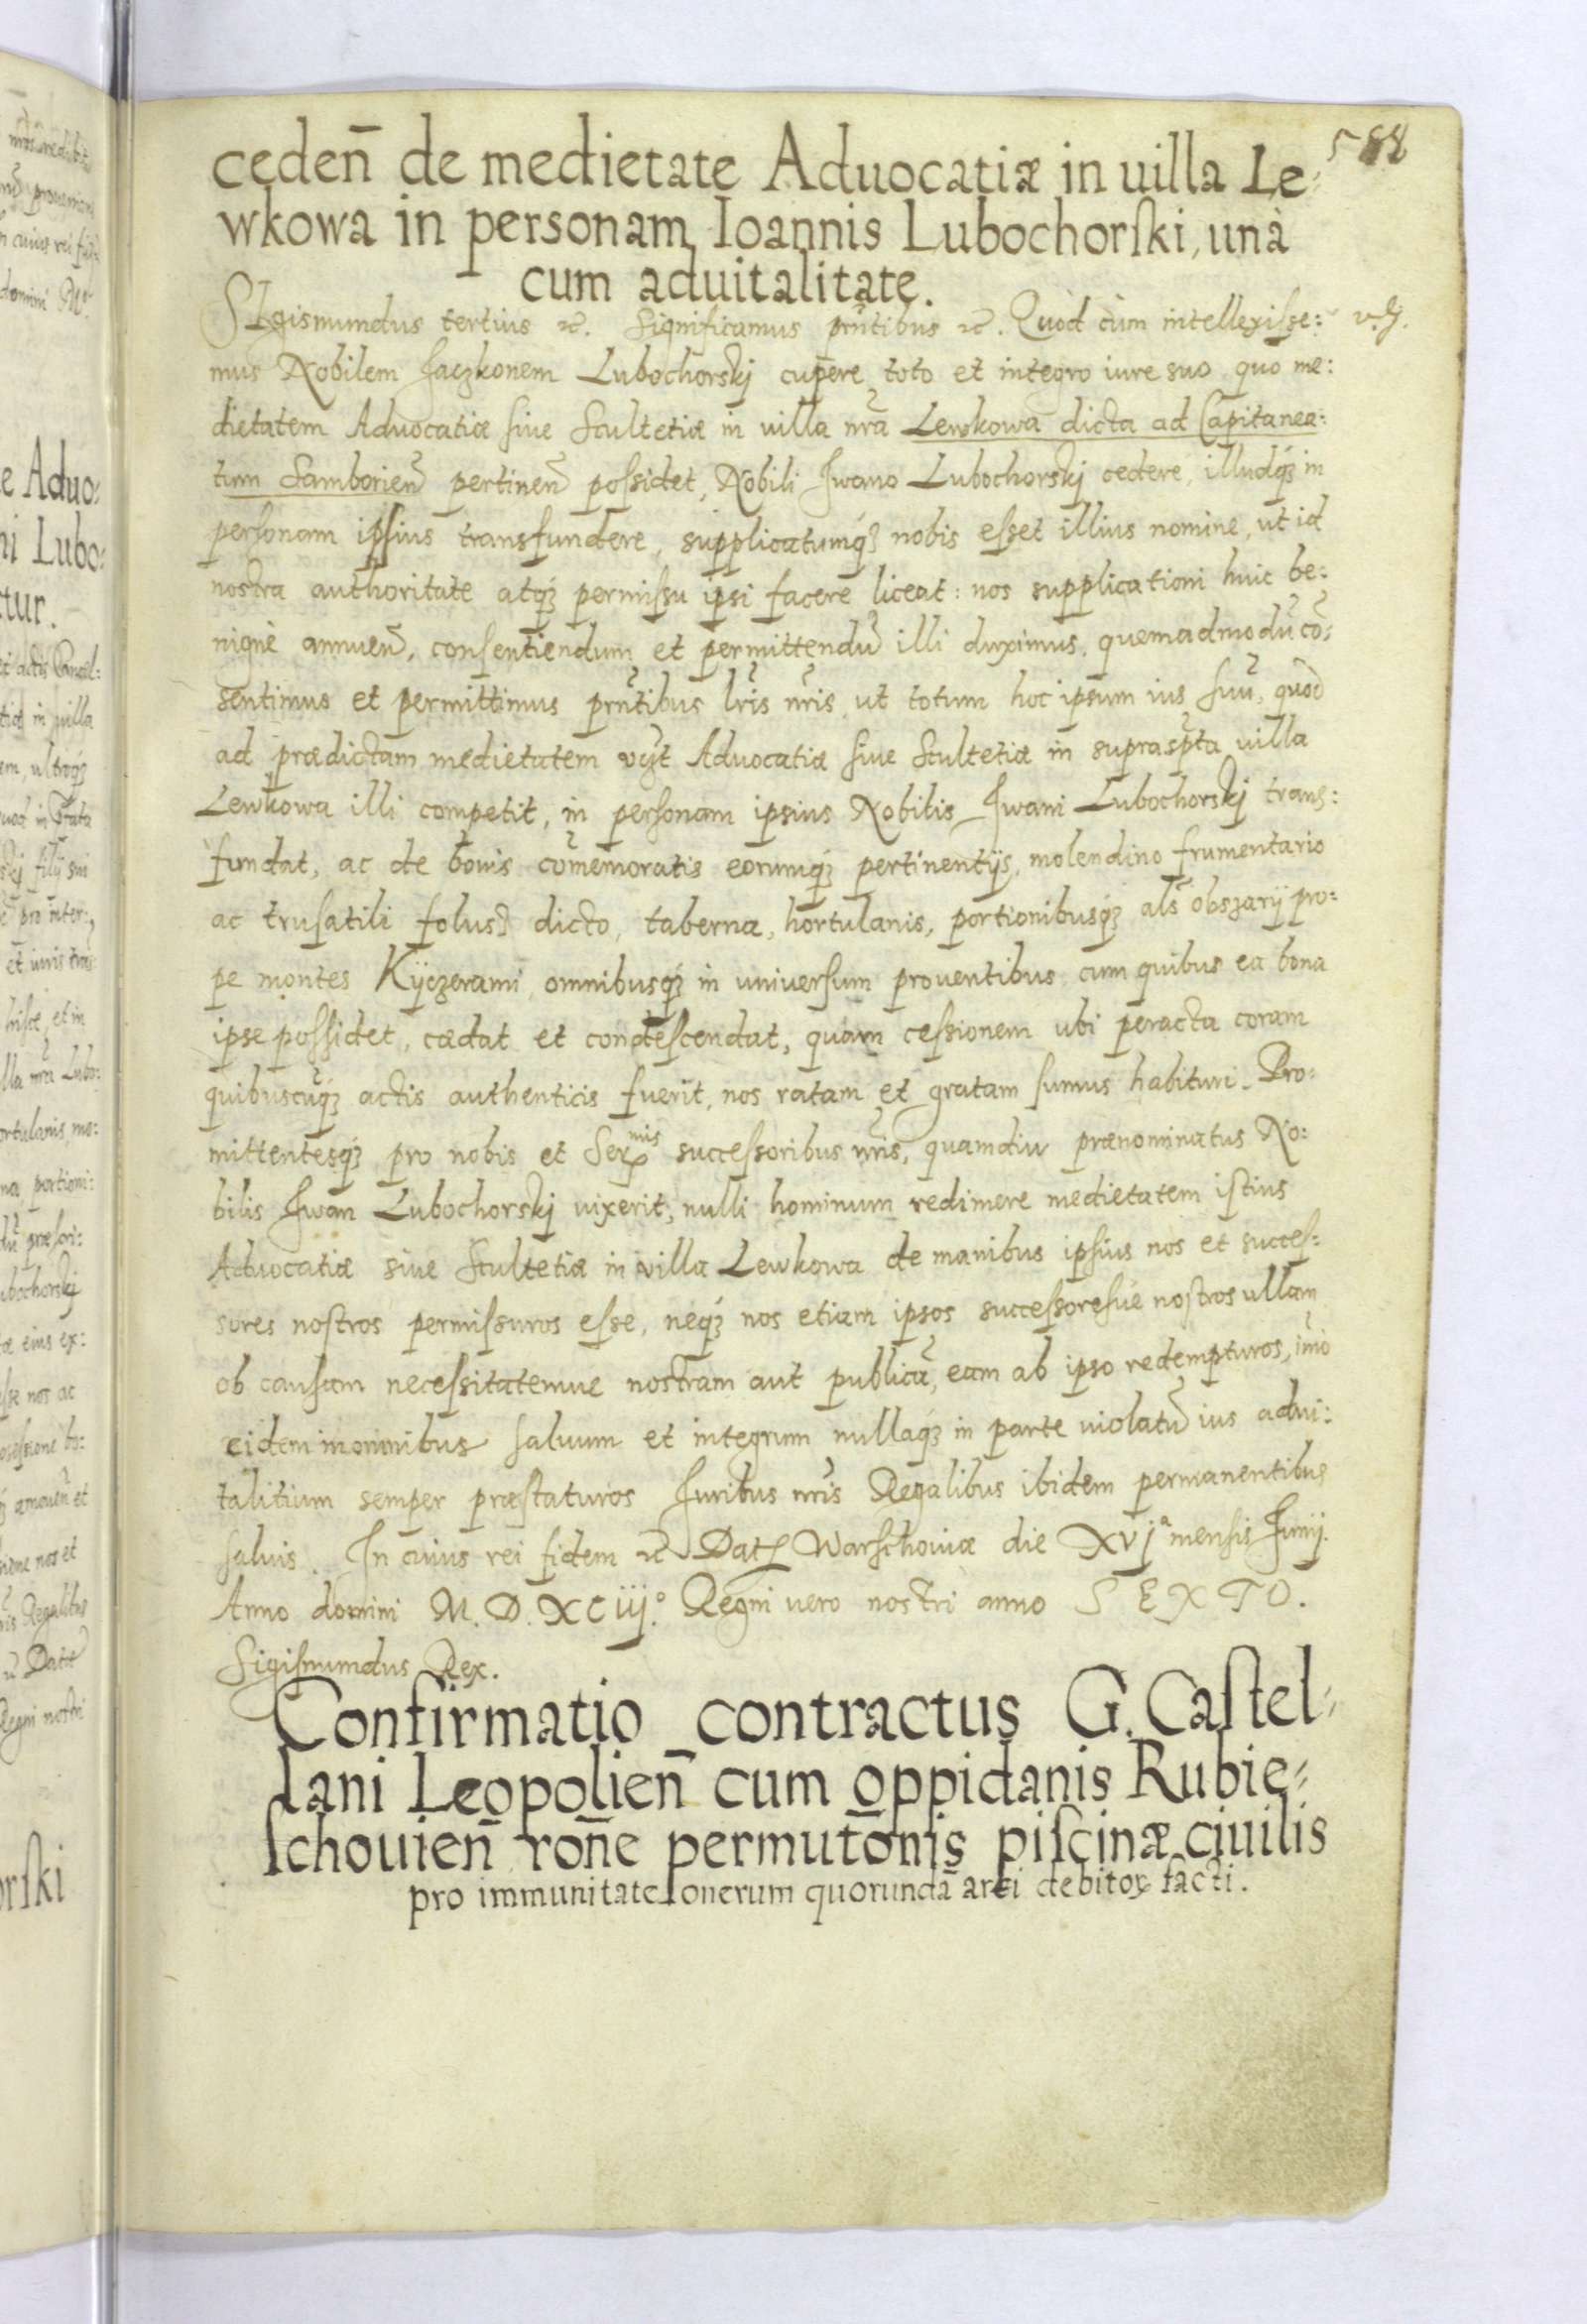 588
ceden̄ de medietate Aduocatiæ in uilla Le:
wkowa in personam Ioannis Lubochorſki, unà
cum aduitalitate.
SIgismundus tertius ꝛc. Significamus prn̄tibus ꝛc. Quòd cùm intellexiſse:
mus Nobilem Jaczkonem Lubochorskj cupere toto et integro iure suo quo me:
dietatem Aduocatiæ ſiue Scultetiæ in uilla nrã Lewkowa dicta ad Capitanea:
tum Samborien̄ pertinen̄ poſsidet, Nobili Jwano Lubochorskj cedere, illudq́ꝫ in
perſonam ipſius transfundere, supplicatumq́ꝫ nobis eſset illius nomine, ut id
nostra authoritate atq́ꝫ permiſsu ipsi facere liceat: nos supplicationi huic be:
nignè annuen̄, conſentiendum et permittendũ illi duximus, quemadmodũ cõ:
sentimus et permittimus prn̄tibus lr̃is nr̃is ut totum hoc ipsum ius ſuũ, quod
ad prædictam medietatem Aduocatiæ ſiue Scultetiæ in suprasp̃ta uilla
Lewkowa illi competit, in perſonam ipsius Nobilis Jwani Lubochorskj trans:
fundat, ac de bonis cõmemoratis eorumq́ꝫ pertinentijs, molendino frumentario
ac truſatili foluſz dicto, taberna, hortulanis, portionibusq́ꝫ als̃ obszarij pro:
pe montes Kÿczerami, omnibusq́ꝫ in uniuerſum prouentibus cum quibus ea bona
ipse poſsidet, cædat et condeſcendat, quam ceſsionem ubi peracta coram
quibuscũq́ꝫ actis authenticis fuerit, nos ratam et gratam ſumus habituri. Pro:
mittentesq́ꝫ pro nobis et Serꝛmis succeſsoribus nr̃is, quamdiu prænominatus No:
bilis Jwan Lubochorskj uixerit, nulli hominum redimere medietatem iſtius
Aduocatiæ siue Scultetiæ in uilla Lewkowa de manibus ipſius nos et succeſ:
sores noſtros permiſsuros eſse, neq́ꝫ nos etiam ipsos succeſsoresúe noſtros ullam
ob cauſam neceſsitatemue nostram aut publicã, eam ab ipso redempturos, imò
eidem in omnibus ſaluum et integrum nullaq́ꝫ in parte uiolatũ ius adui:
talitium semper præſtaturos Juribus nr̃is Regalibus ibidem permanentibus
ſaluis. In cuius rei fidem ꝛc Datꝭ Warſchouiæ die XVIᵃ mensis Junij.
Anno domini M. D. XCiij.º Regni uero nostri anno SEXTO.
Sigiſmundus Rex.
Confirmatio contractus G. Caſtel:
lani Leopolien̄ cum oppidanis Rubie:
ſchouien̄ ron̄e permutōnis piſcinæ ciuilis
pro immunitate onerum quorundā arci debitoꝝ facti.